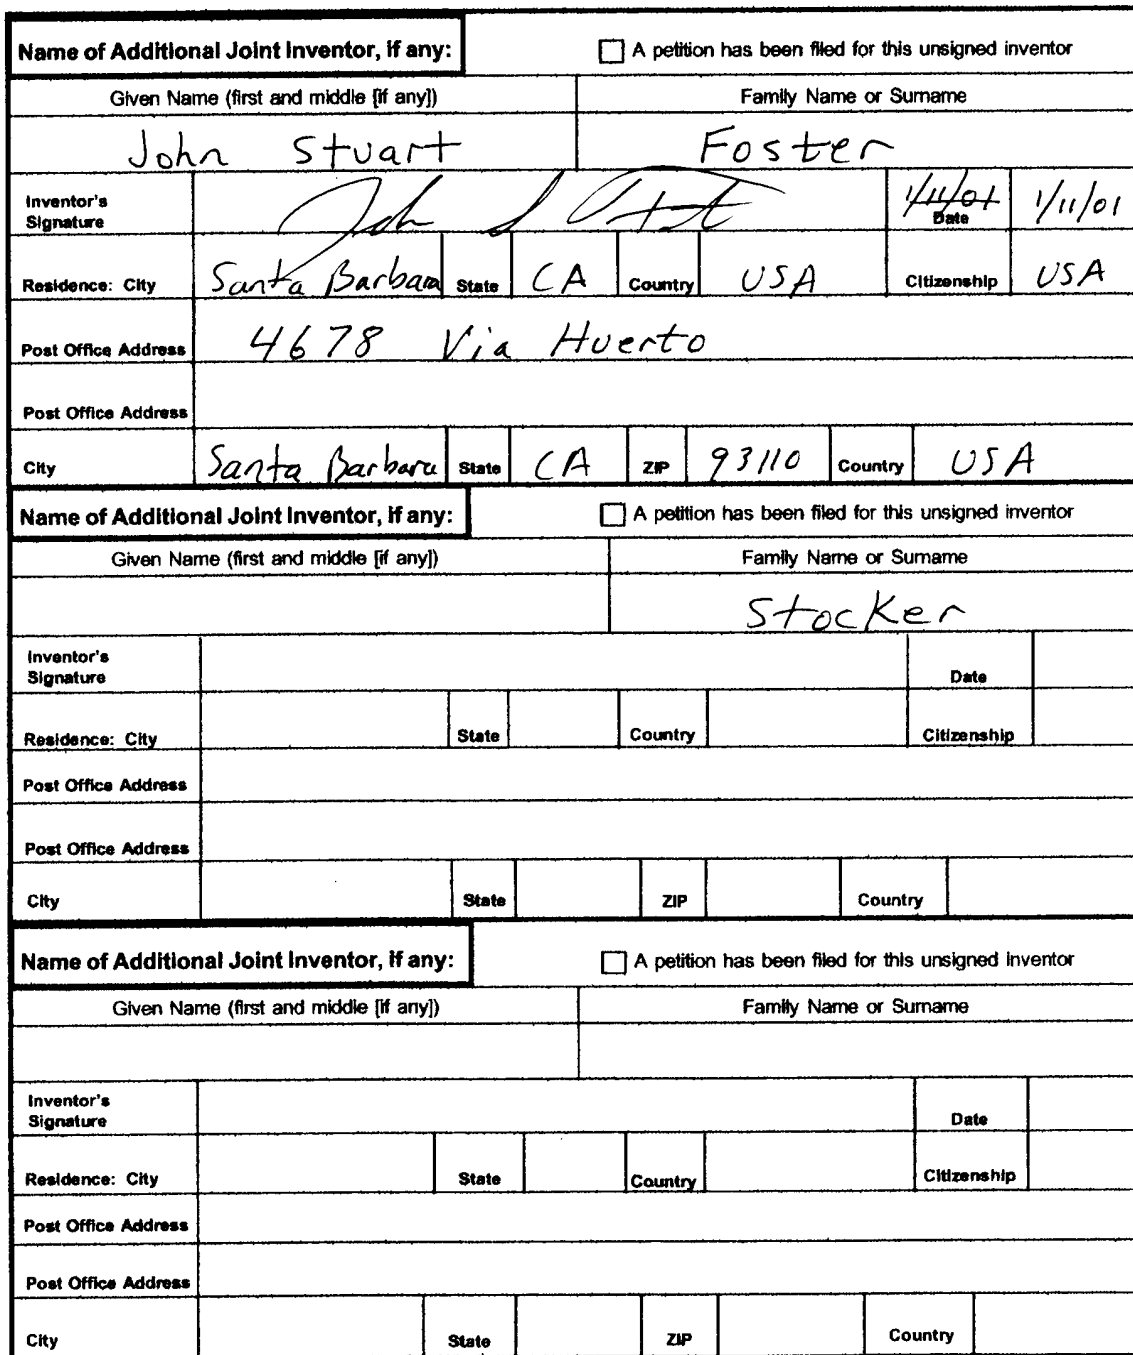 Name of Additional Joint Inventor, if any: A petition has been filed for this unsigned inventor
Given Name (first and middle [if any]) Family Name or Surname
John Stuart Foster
Inventor's Signature 1/11/01 Date 1/11/01
Residence: City Santa Barbara State CA Country USA Citizenship USA
Post Office Address 4678 Via Huerto
Post Office Address
City Santa Barbara State CA ZIP 93110 Country USA
Name of Additional Joint Inventor, if any: A petition has been filed for this unsigned inventor
Given Name (first and middle [if any]) Family Name or Surname
Stocker
Inventor's Signature Date
Residence: City State Country Citizenship
Post Office Address
Post Office Address
City State ZIP Country
Name of Additional Joint Inventor, if any: A petition has been filed for this unsigned inventor
Given Name (first and middle [if any]) Family Name or Surname
Inventor's Signature Date
Residence: City State Country Citizenship
Post Office Address
Post Office Address
City State ZIP Country